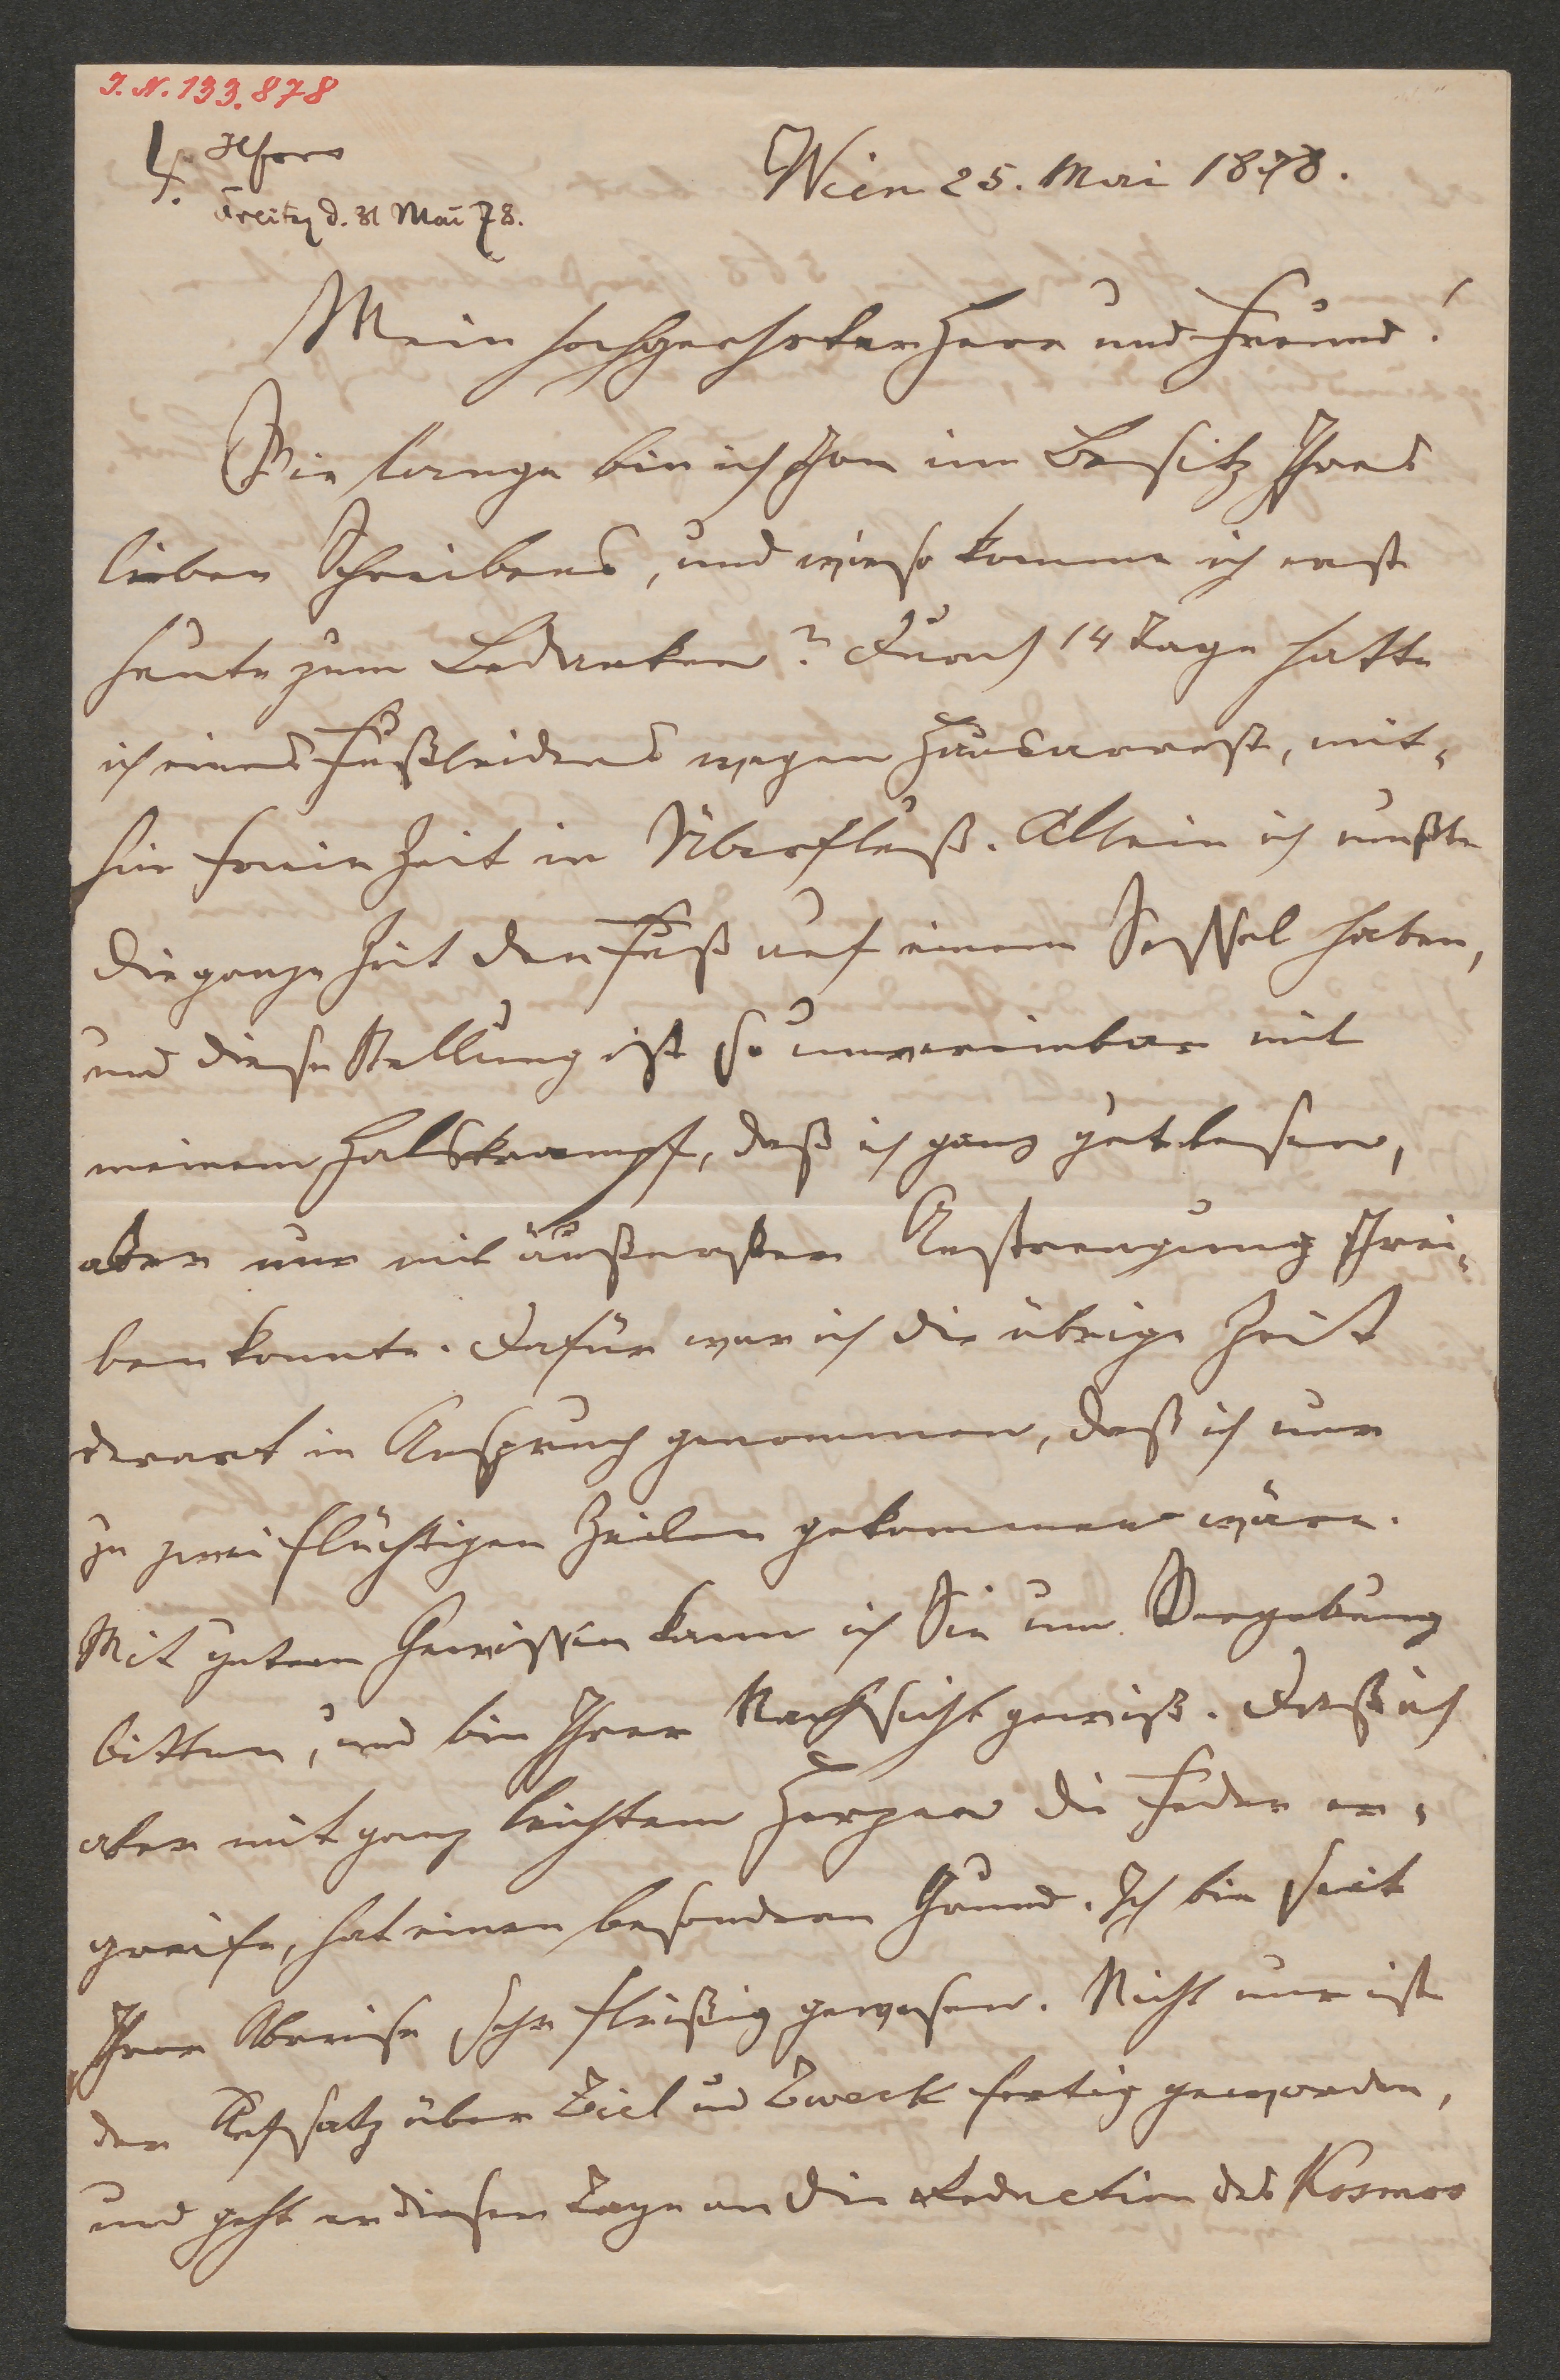 I. N. 133.878
Freitag d. 31 Mai 78.
Wien 25. Mai 1878.
Mein hochgeehrter Herr und Freund!
Wie lange bin ich schon im Besitz Ihres
lieben Schreibens, und wieso komme ich erst
heute zum Bedanken? Durch 14 Tage hatte
ich eines Fußleidens wegen Hausarrest, mit-
hin freie Zeit in Überfluß. Allein ich mußte
die ganze Zeit den Fuß auf einem Sessel haben,
und diese Stellung ist so unvereinbar mit
meinem Halskrampf, daß ich ganz gut lesen,
aber nur mit äußerster Anstrengung schrei-
ben konnte. Dafür war ich die übrige Zeit
derart in Anspruch genommen, daß ich nur
zu zwei flüchtigen Zeilen gekommen wäre.
Mit gutem Gewissen kann ich Sie um Vergebung
bitten, und bin Ihrer Nachsicht gewiß. Daß ich
aber mit ganz leichtem Herzen die Feder er-
greife, hat einen besondern Grund. Ich bin seit
Ihrer Abreise sehr fleißig gewesen. Nicht nur ist
der Aufsatz über Ziel und Zweck fertig geworden,
und geht er dieser Tage an die Redaction des Kosmos